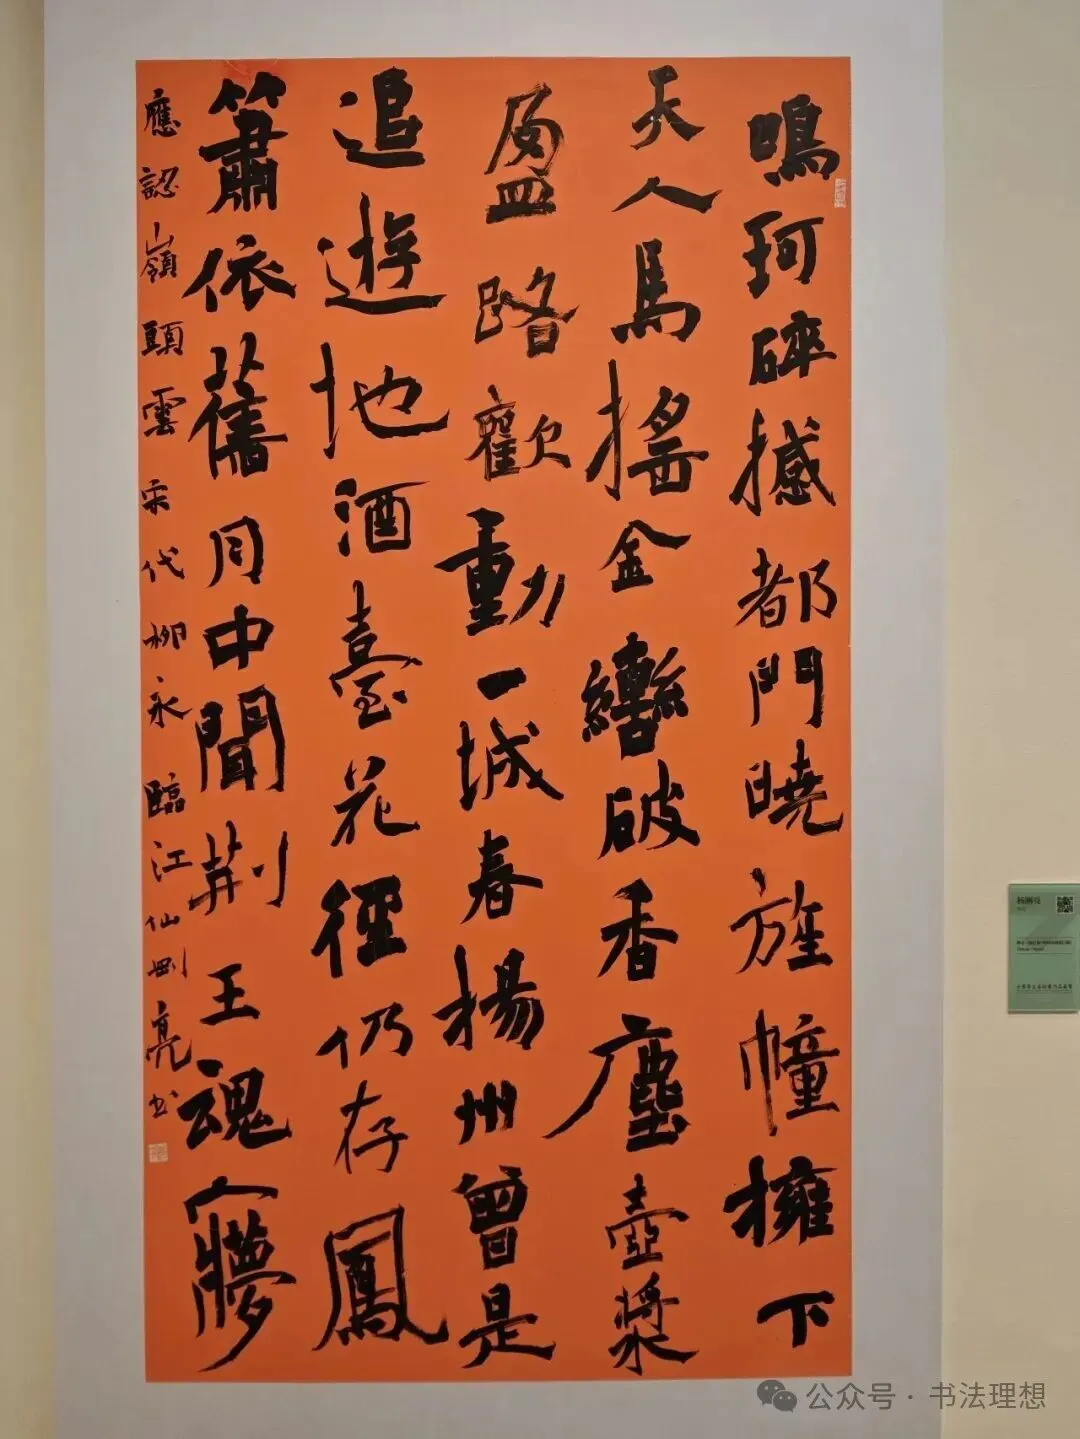 鳴珂碎撼都門曉旌幢擁下
天人馬搖金轡破香塵壺漿
盈路歡動一城春楊州曾是
追遊地酒臺花徑仍存鳳
簫依舊月中聞荆王魂㝱
應認嶺頭雲宋代柳永臨江仙剛亮书
公众号·书法理想